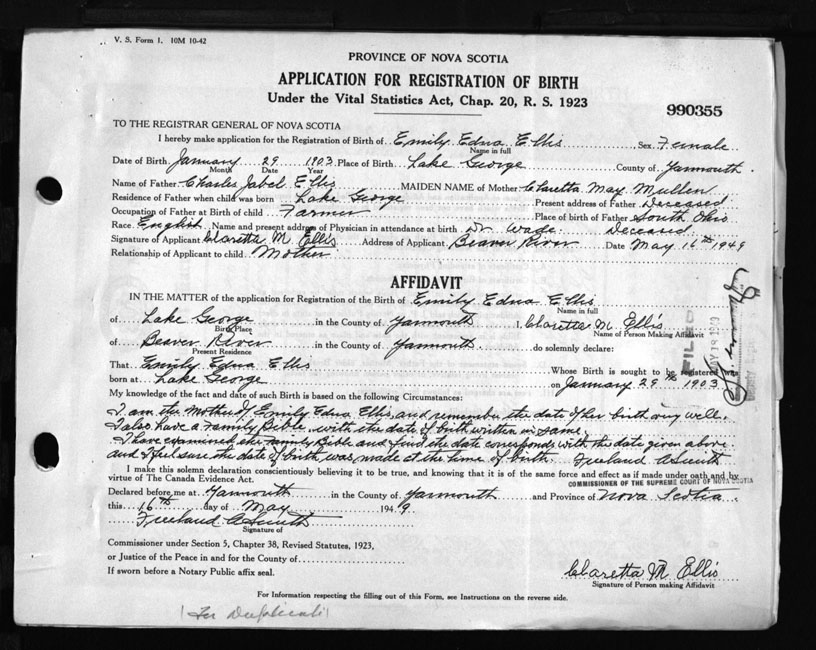 V. S. Form 1. 10M 10-42
PROVINCE OF NOVA SCOTIA
APPLICATION FOR REGISTRATION OF BIRTH
Under the Vital Statistics Act, Chap. 20, R. S. 1923
990355
TO THE REGISTRAR GENERAL OF NOVA SCOTIA
I hereby make application for the Registration of Birth of Emily Edna Ellis Sex Female
Name in full
Date of Birth January 29 1903 Place of Birth Lake George County of Yarmouth
Month Date Year
Name of Father Charles Jabel Ellis MAIDEN NAME of Mother Claretta May Mullen
Residence of Father when child was born Lake George Present address of Father Deceased
Occupation of Father at Birth of child Farmer Place of birth of Father South Ohio
Race English Name and present address of Physician in attendance at birth Dr Wade Deceased
Signature of Applicant Claretta M. Ellis Address of Applicant Beaver River Date May 16th 1949
Relationship of Applicant to child Mother
AFFIDAVIT
IN THE MATTER of the application for Registration of the Birth of Emily Edna Ellis
Name in full
of Lake George in the County of Yarmouth I, Claretta M. Ellis
Birth Place Name of Person Making Affidavit
of Beaver River in the County of Yarmouth do solemnly declare:
Present Residence
That Emily Edna Ellis Whose Birth is sought to be registered was
born at Lake George on January 29th 1903
My knowledge of the fact and date of such Birth is based on the following Circumstances:
I am the Mother of Emily Edna Ellis, and remember the date of her birth very well.
I also have a family Bible with the date of birth written in same.
I have examined the family Bible and find the date corresponds with the date given above
and I feel sure the date of birth was made at the time of birth. Freeland A Smith
I make this solemn declaration conscientiously believing it to be true, and knowing that it is of the same force and effect as if made under oath and by
virtue of The Canada Evidence Act.
COMMISSIONER OF THE SUPREME COURT OF NOVA SCOTIA
Declared before me at Yarmouth in the County of Yarmouth and Province of Nova Scotia
this 16th day of May 1949
Freeland A Smith
Signature of
Commissioner under Section 5, Chapter 38, Revised Statutes, 1923,
or Justice of the Peace in and for the County of
If sworn before a Notary Public affix seal.
Claretta M Ellis
Signature of Person making Affidavit
For Information respecting the filling out of this Form, see Instructions on the reverse side.
(For Duplicate)
FILED